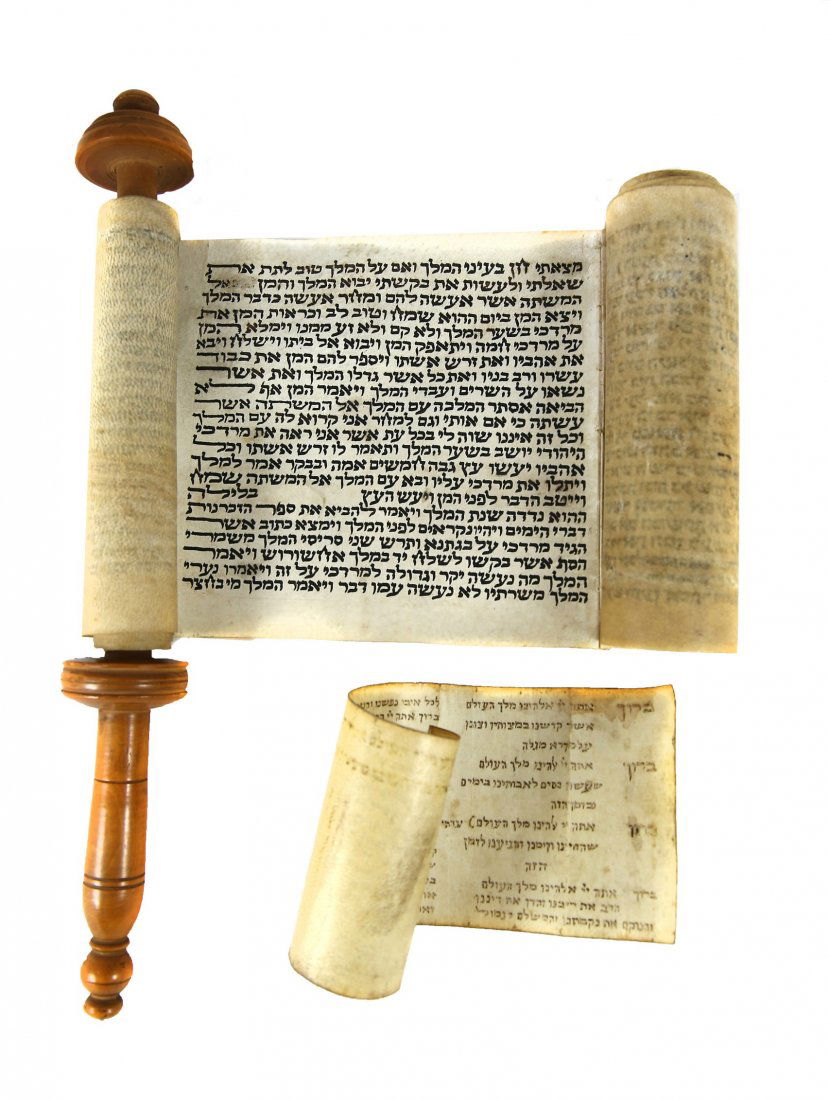 מצאתי חן בעיני המלך ואם על המלך טוב לתת את
שאלתי ולעשות את בקשתי יבוא המלך והמן אל
המשתה אשר אעשה להם ומחר אעשה כדבר המלך
ויצא המן ביום ההוא שמח וטוב לב וכראות המן את
מרדכי בשער המלך ולא קם ולא זע ממנו וימלא המן
על מרדכי חמה ויתאפק המן ויבוא אל ביתו וישלח ויבא
את אהביו ואת זרש אשתו ויספר להם המן את כבוד
עשרו ורב בניו ואת כל אשר גדלו המלך ואת אשר
נשאו על השרים ועבדי המלך ויאמר המן אף לא
הביאה אסתר המלכה עם המלך אל המשתה אשר
עשתה כי אם אותי וגם למחר אני קרוא לה עם המלך
וכל זה איננו שוה לי בכל עת אשר אני ראה את מרדכי
היהודי יושב בשער המלך ותאמר לו זרש אשתו וכל
אהביו יעשו עץ גבה חמשים אמה ובבקר אמר למלך
ויתלו את מרדכי עליו ובא עם המלך אל המשתה שמח
וייטב הדבר לפני המן ויעש העץ בלילה
ההוא נדדה שנת המלך ויאמר להביא את ספר הזכרנות
דברי הימים ויהיו נקראים לפני המלך וימצא כתוב אשר
הגיד מרדכי על בגתנא ותרש שני סריסי המלך משמרי
הסף אשר בקשו לשלח יד במלך אחשורוש ויאמר
המלך מה נעשה יקר וגדולה למרדכי על זה ויאמרו נערי
המלך משרתיו לא נעשה עמו דבר ויאמר המלך מי בחצר
ברוך אתה יי אלהינו מלך העולם
אשר קדשנו במצותיו וצונו
על מקרא מגלה
ברוך אתה יי אלהינו מלך העולם
שעשה נסים לאבותינו בימים
ובזמן הזה
ברוך אתה יי אלהינו מלך העולם
שהחיינו וקימנו והגיענו לזמן
הזה
ברוך אתה יי אלהינו מלך העולם
הרב את ריבנו והדן את דיננו
והנוקם את נקמתנו והמשלם
ברוך אתה יי